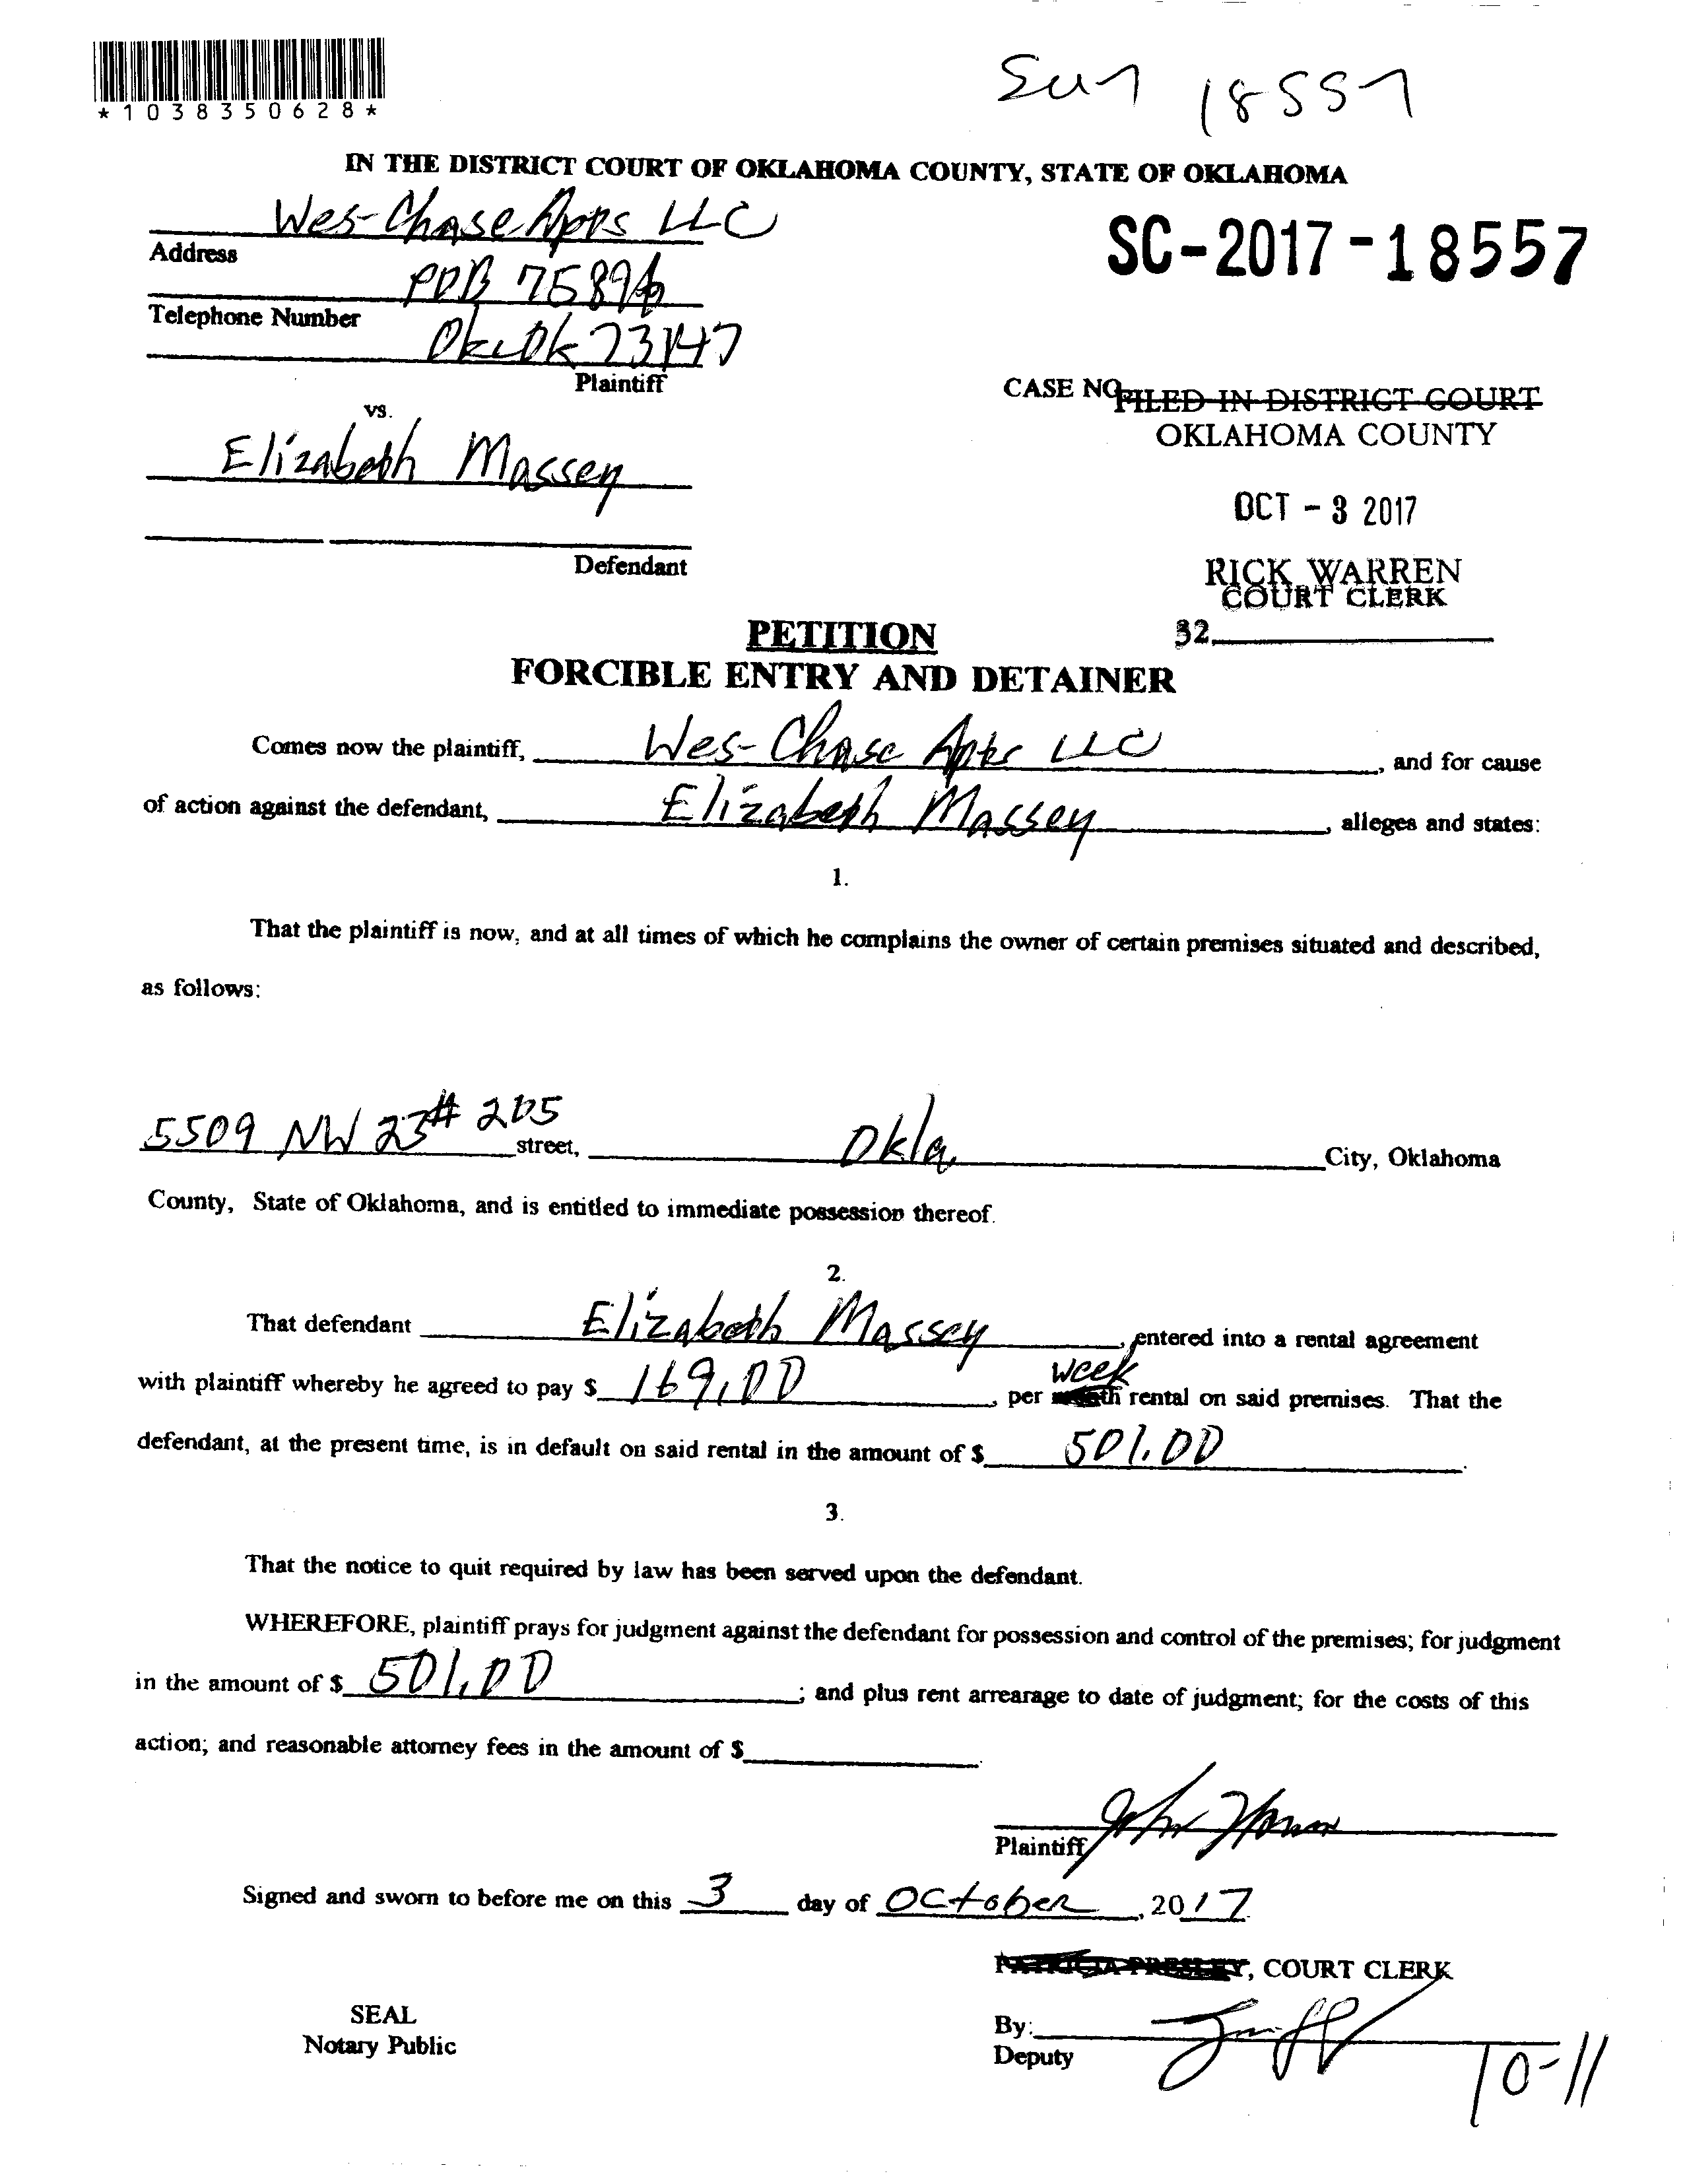 *1038350628*
18557
IN THE DISTRICT COURT OF OKLAHOMA COUNTY, STATE OF OKLAHOMA
Wes-Chase Apts LLC
SC-2017-18557
Address
POB 75894
Telephone Number
Okc Ok 73147
Plaintiff
CASE NO
FILED IN DISTRICT COURT
OKLAHOMA COUNTY
vs.
Elizabeth Massey
OCT - 3 2017
Defendant
RICK WARREN
COURT CLERK
32
PETITION
FORCIBLE ENTRY AND DETAINER
Comes now the plaintiff, Wes-Chase Apts LLC, and for cause
of action against the defendant, Elizabeth Massey, alleges and states:
1.
That the plaintiff is now, and at all times of which he complains the owner of certain premises situated and described,
as follows:
5509 NW 23 # 205 street, Okla. City, Oklahoma
County, State of Oklahoma, and is entitled to immediate possession thereof.
2.
That defendant Elizabeth Massey, entered into a rental agreement
week
with plaintiff whereby he agreed to pay $ 169.00, per month rental on said premises. That the
defendant, at the present time, is in default on said rental in the amount of $ 501.00.
3.
That the notice to quit required by law has been served upon the defendant.
WHEREFORE, plaintiff prays for judgment against the defendant for possession and control of the premises; for judgment
in the amount of $ 501.00; and plus rent arrearage to date of judgment; for the costs of this
action; and reasonable attorney fees in the amount of $ .
John
Plaintiff
Signed and sworn to before me on this 3 day of October, 2017
PATRICIA PRESLEY, COURT CLERK
SEAL
Notary Public
By:
Deputy
10-11